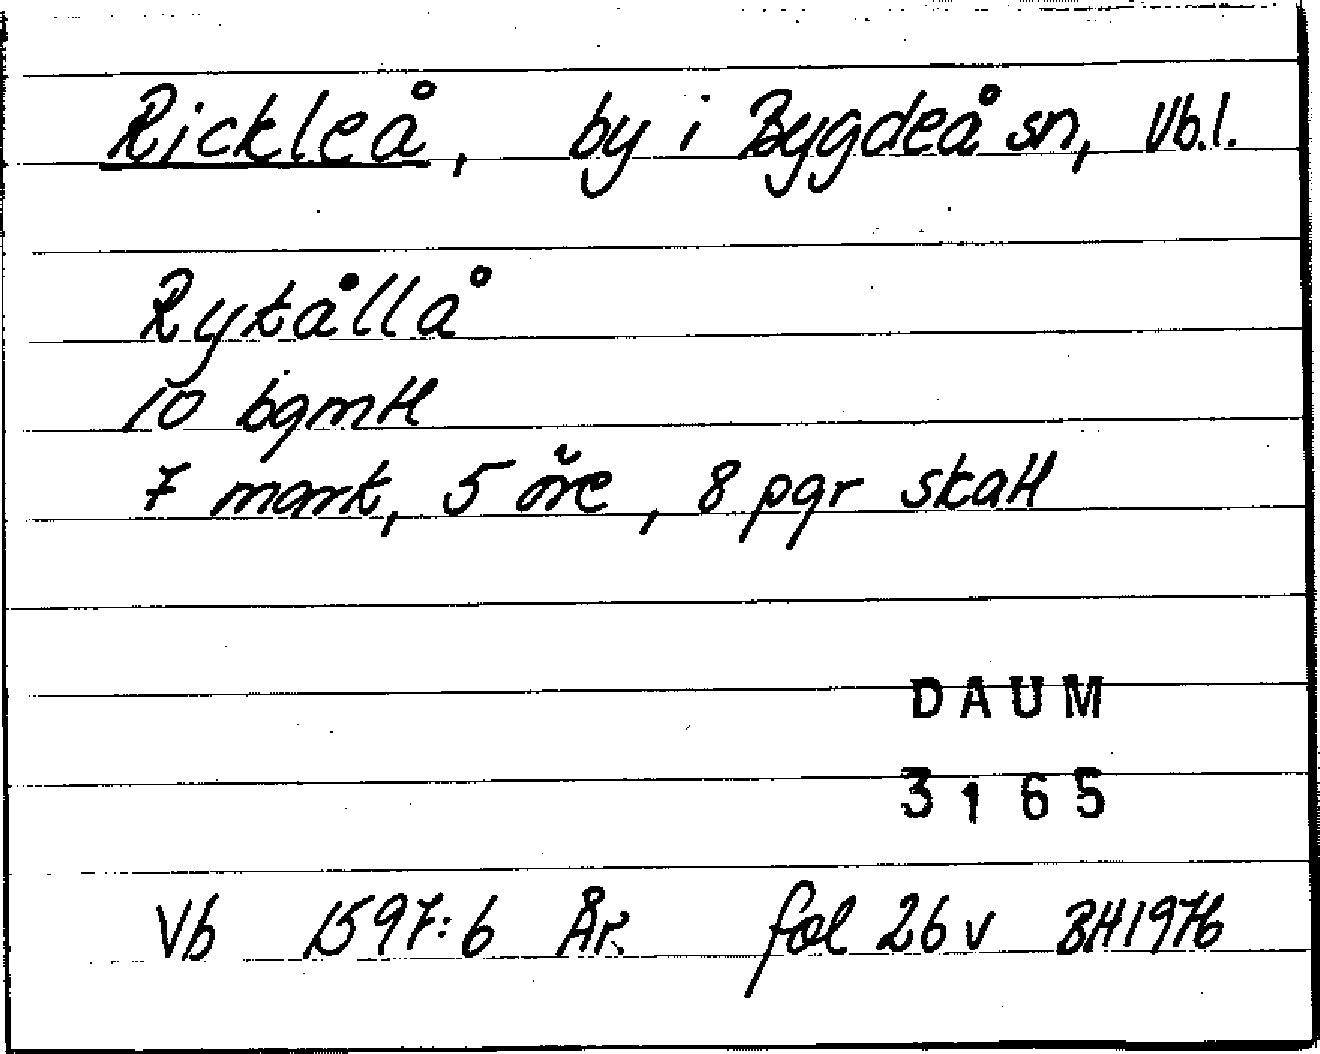 Rickleå, by i Bygdeå sn, Vb.l.
Rykållå
10 bgmtl
7 mark, 5 öre, 8 pgr skatt
DAUM
3165
Vb 1597:6 År fol 26 v BH1976